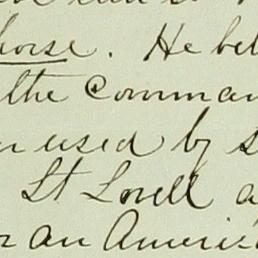 horse. He bel
the comman
used by s
Lt Lovell a
or an Americ